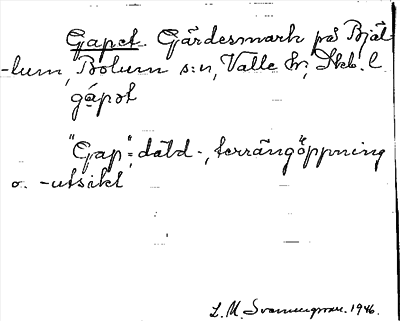 Gapet Gärdesmark på Bjäl
-lum, Bolum s:n, Valle hr, Skb. l
gápət
"Gap", däld-, terrängöppning
o. -utsikt
L. M. Svanungsson. 1946.